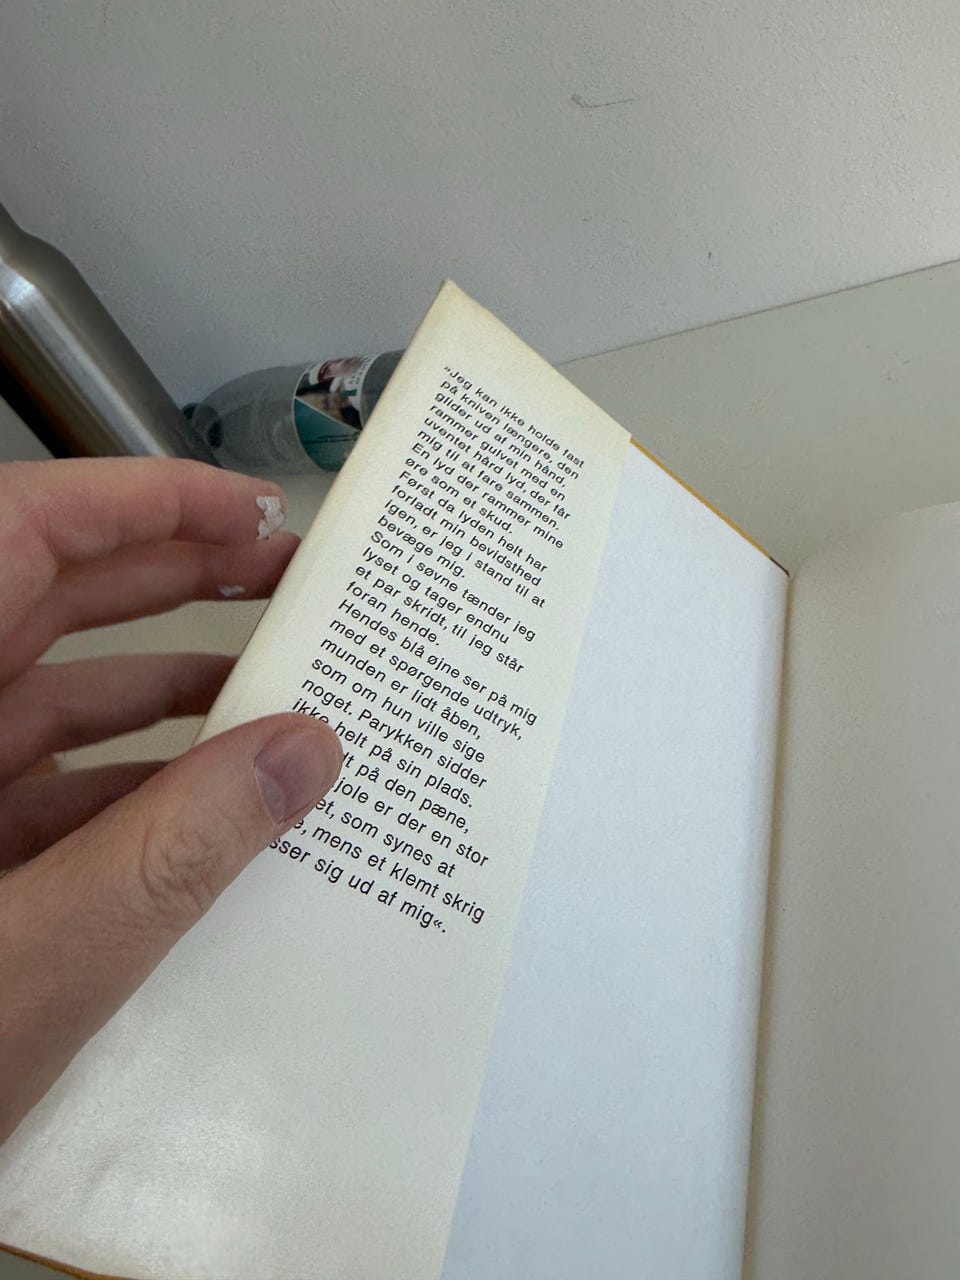 »Jeg kan ikke holde fast
på kniven længere, den
glider ud af min hånd,
rammer gulvet med en
uventet hård lyd, der får
mig til at fare sammen.
En lyd der rammer mine
øre som et skud.
Først da lyden helt har
forladt min bevidsthed
igen, er jeg i stand til at
bevæge mig.
Som i søvne tænder jeg
lyset og tager endnu
et par skridt, til jeg står
foran hende.
Hendes blå øjne ser på mig
med et spørgende udtryk,
munden er lidt åben,
som om hun ville sige
noget. Parykken sidder
ikke helt på sin plads.
på den pæne,
er der en stor
som synes at
mens et klemt skrig
sig ud af mig«.